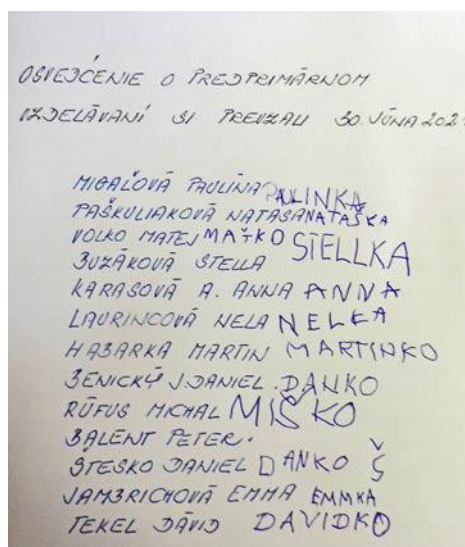 OSVEDČENIE O PREDPRIMÁRNOM
VZDELÁVANÍ SI PREVZALI 30. JÚNA 202
MIGAĽOVÁ PAULÍNA PAULINKA
PAŠKULIAKOVÁ NATAŠA NATAŠKA
VOLKO MATEJ MAŤKO
BUZÁKOVÁ STELLA STELLKA
KARASOVÁ A. ANNA ANNA
LAURINCOVÁ NELA NELKA
HABARKA MARTIN MARTINKO
BENICKÝ J. DANIEL DANKO
RÚFUS MICHAL MIŠKO
BALENT PETER
ŠTESKO DANIEL DANKO Š
JAMBRICHOVÁ EMMA EMMKA
TEKEL DÁVID DAVIDKO